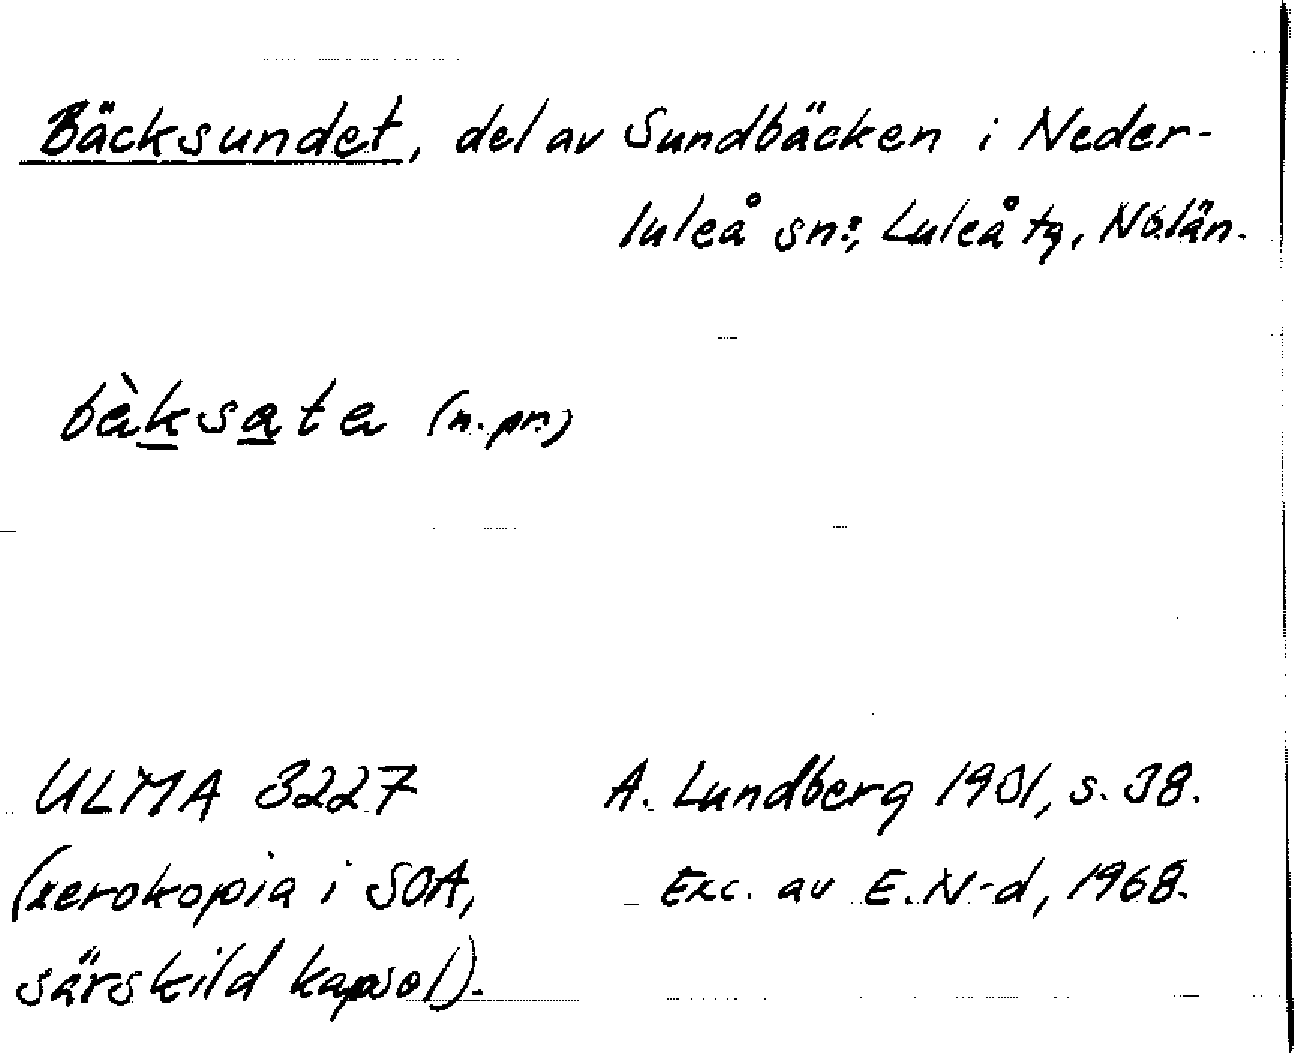 Bäcksundet, del av Sundbäcken i Neder-
luleå sn:, Luleå tg, Nb.län.
bàksata (n.pr.)
ULMA 3227
(xerokopia i SOA,
särskild kapsel).
A. Lundberg 1931, s. 38.
Exc. av E.N-d, 1968.